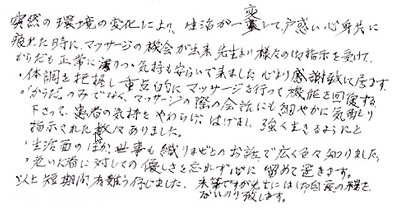 突然の環境の変化により、生活が一変して戸惑い心身共に
疲れた時に、マッサージの機会が出来先生より様々の御指示を受けて、
からだも正常に気持も安らいで来ました 心より感謝致して居ます。
・体調を把握し重点的にマッサージを行って機能を回復させ
・からだのみでなく、マッサージの際の会話にも細やかに気配り
下さって、患者の気持をやわらげ、はげまし、強く生きるようにと
指示された数々ありました。
・生活面のほか、世事も織りまぜとのお話で広く色々知りました。
・老いた者に対しての優しさを忘れず心に留めて置きます。
以上 短期間 有難う存じました。末筆ですが先生には御自愛の程を
お祈り致します。